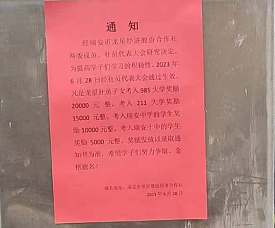 通知
经瑞安市龙星经济股份合作社
两委成员、社员代表大会研究决定，
为提高学子们学习的积极性，2023年
6月28日经社员代表大会通过生效。
凡是龙星社员子女考入985大学奖励
20000元整，考入211大学奖励
15000元整，考入瑞安中学的学生奖
励10000元整，考入瑞安十中的学生
奖励5000元整，奖励发放以录取通
知书为准，希望学子们努力争取，金
榜题名！
2023年6月28日